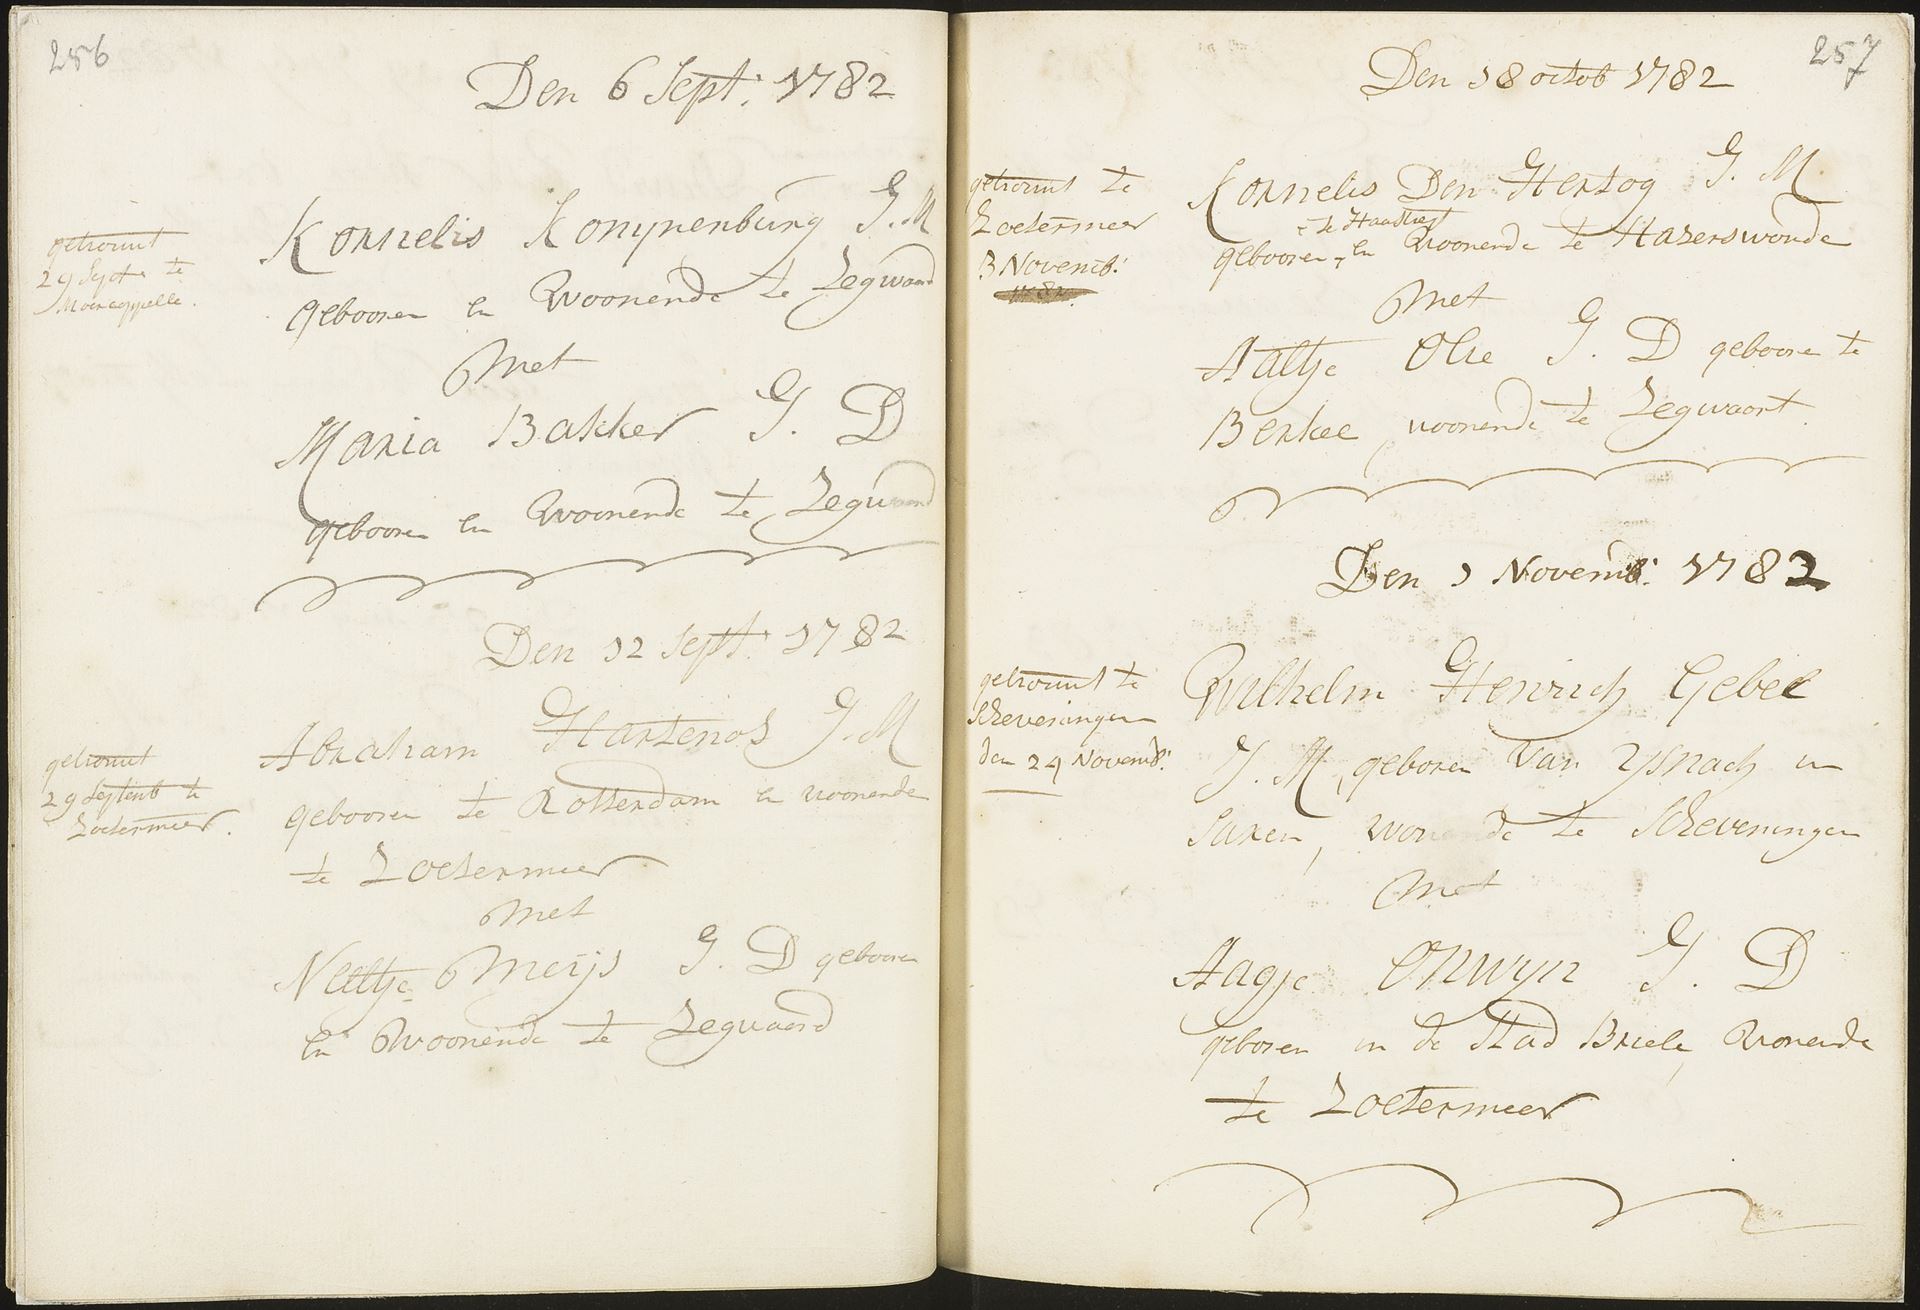 256
Den 6 Sept: 1782
getrouwt
29 Sept: te
Moercappelle.
Kornelis Konynenburg J. M
gebooren en Woonende te Zegwaard
Met
Maria Bakker J. D
gebooren en Woonende te Zegwaard
Den 12 Sept: 1782
getrouwt
29 Septemb te
Zoetermeer.
Abraham Hartenos J. M
gebooren te Rotterdam en woonende
te Zoetermeer
Met
Neeltje Meijs J. D gebooren
en Woonende te Zegwaard
257
Den 18 octob 1782
getrouwt te
Zoetermeer
3 Novemb:
1782.
Kornelis Den Hertog J. M.
te Haastregt
gebooren, en Woonende te Hazerswoude
Met
Aaltje Olie J. D geboore te
Berkel, woonende te Zegwaart
Den 1 Novemb: 1782
getrouwt te
Scheveningen
den 24 Novemb:
Wilhelm Henrich Gebel
J. M, geboren van Ysnach in
Saxen, wonende te Scheveningen
Met
Aagje Onwyn J. D
geboren in de Stad Briele, Wonende
te Zoetermeer